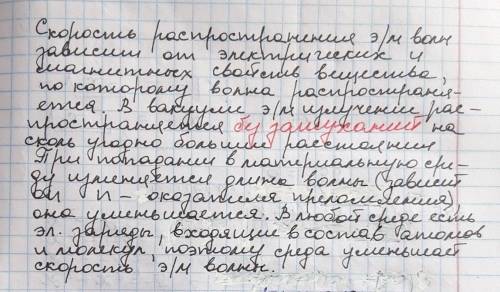 Скорость распространения э/м волн
зависит от электрических и
магнитных свойств вещества,
по которому волна распространя-
ется. В вакууме э/м излучении рас-
пространяется бу затуханий на
сколь угодно большие расстояния
При попадании в материальную сре-
ду изменяется длина волны (зависит
от n - оказателя преломления),
она уменьшается. В любой среде есть
эл. заряды, входящие в состав атомов
и молекул, поэтому среда уменьшает
скорость э/м волны.